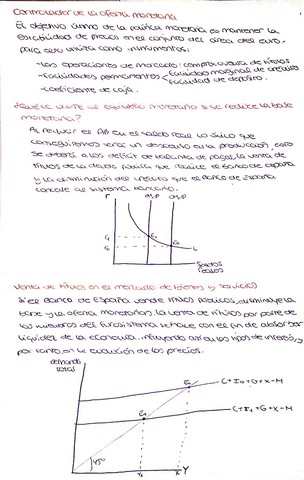 Controlador de la oferta monetaria
El objetivo último de la política monetaria es mantener la
estabilidad de precios en el conjunto del área del euro,
para ello utiliza como instrumentos:
-Las operaciones de mercado: compra-venta de títulos
-Facilidades permanentes facilidad marginal de crédito
facilidad de depósito.
-Coeficiente de caja.
¿Qué le ocurre al equilibrio monetario si se reduce la base
monetaria?
Al reducir el en el saldo real lo único que
conseguiremos será un descenso en la producción, esto
se deberá a los déficit de balanza de pagos, la venta de
títulos de la deuda pública que realice el Banco de España
y la eliminación del crédito que el Banco de España
concede al sistema bancario.
r
L
Saldos
reales
Venta de títulos en el mercado de bienes y servicios
Si el Banco de España vende títulos públicos, disminuye la
base y la oferta monetarias. La venta de títulos por parte de
los miembros del Eurosistema se hace con el fin de absorber
liquidez de la economía, influyendo así en los tipos de interés, y
por tanto, en la evolución de los precios.
demanda
total
C+I₀+G+X-M
C+I₁+G+X-M
45º
Y